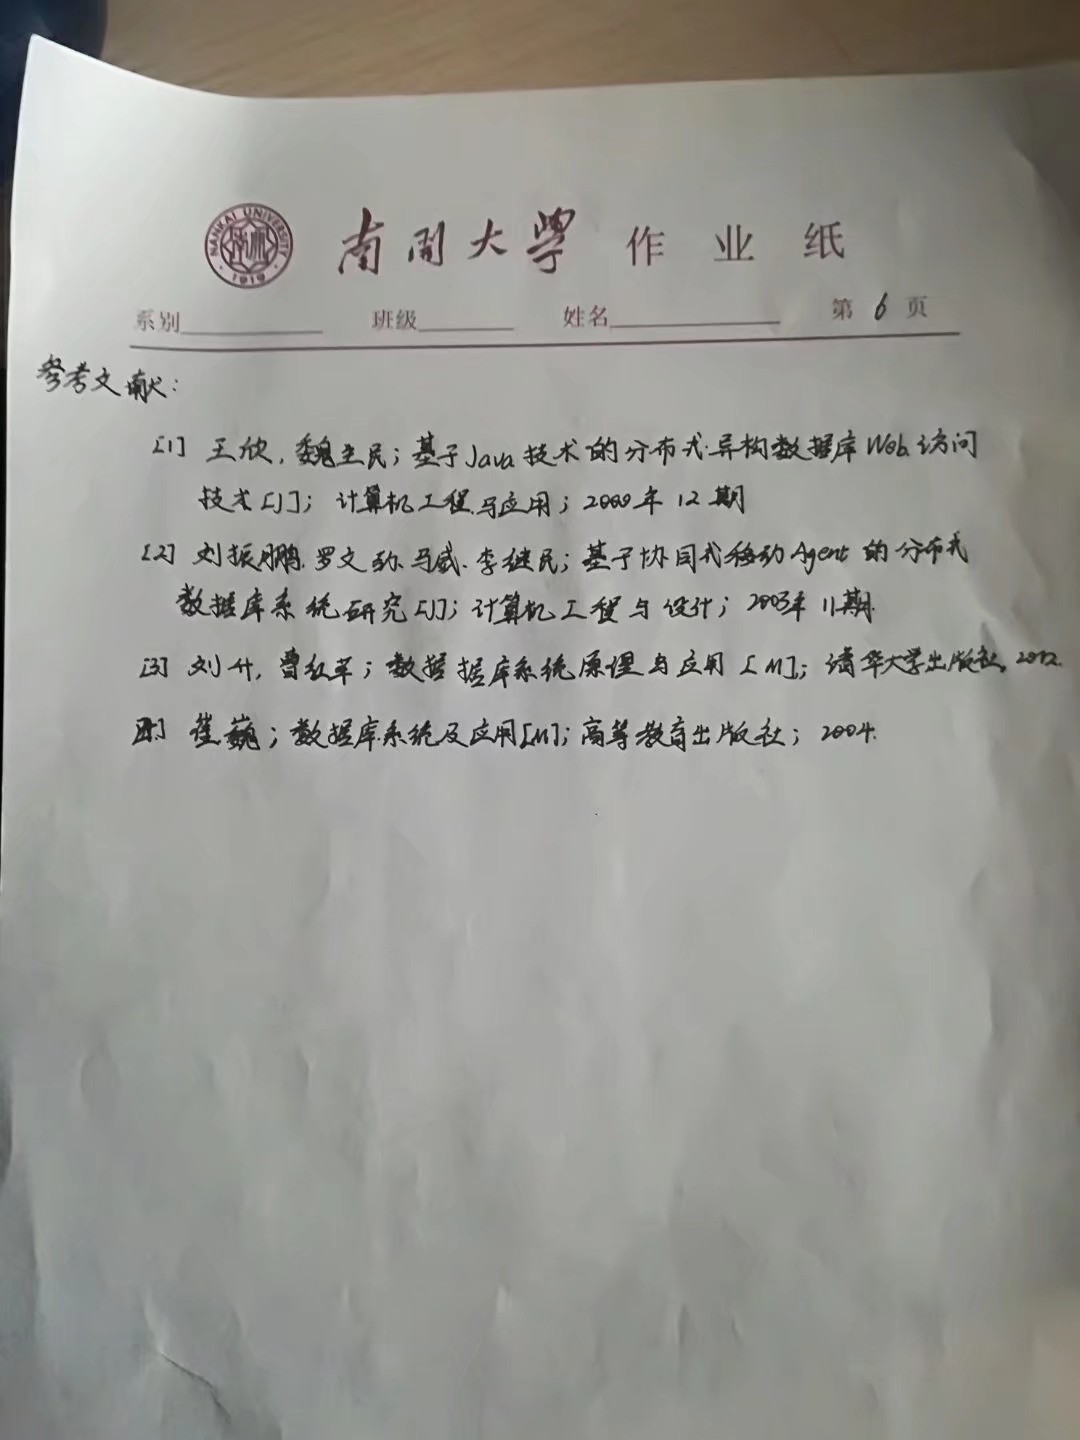 NANKAI UNIVERSITY 1919
南开大学 作业纸
系别 班级 姓名 第 6 页
参考文献：
[1] 王欣, 魏生民; 基于Java技术的分布式异构数据库Web访问
技术[J]; 计算机工程与应用; 2000年12期
[2] 刘振鹏. 罗文劼. 马威. 李继民; 基于协同式移动Agent的分布式
数据库系统研究[J]; 计算机工程与设计; 2003年11期.
[3] 刘升, 曹红苹; 数据据库系统原理与应用[M]; 清华大学出版社, 2012.
[4] 崔巍; 数据库系统及应用[M]; 高等教育出版社; 2004.